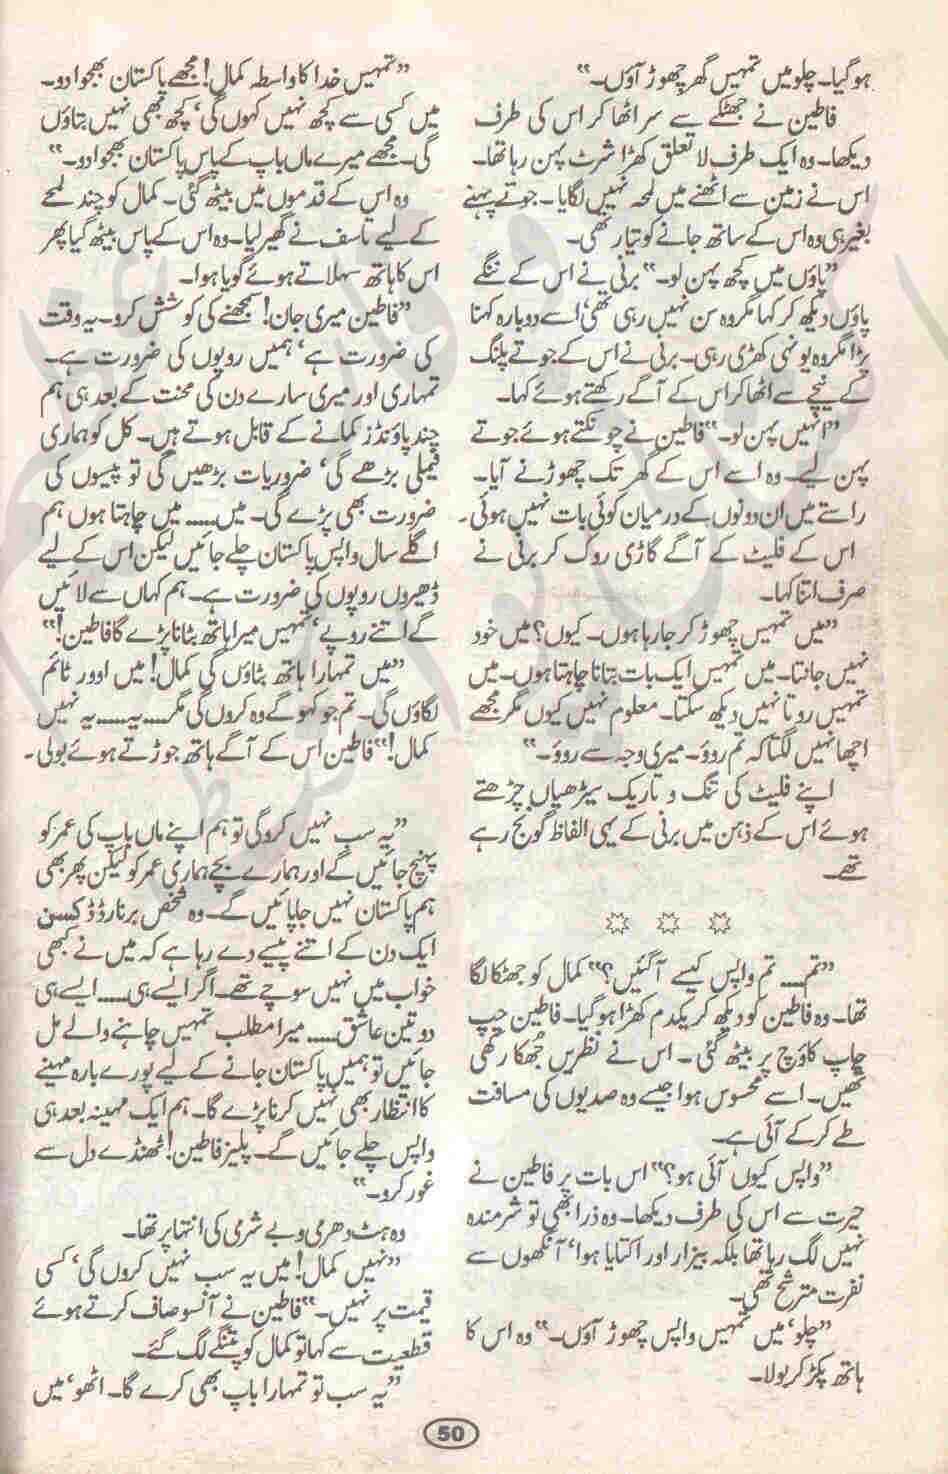 ہوگیا۔ چلو میں تمہیں گھر چھوڑ آؤں۔“
فاطین نے جھٹکے سے سر اٹھا کر اس کی طرف
دیکھا۔ وہ ایک طرف لا تعلق کھڑا شرٹ پہن رہا تھا۔
اس نے زمین سے اٹھنے میں لمحہ نہیں لگایا۔ جوتے پہنے
بغیر ہی وہ اس کے ساتھ جانے کو تیار تھی۔
”پاؤں میں کچھ پہن لو۔“ برنی نے اس کے ننگے
پاؤں دیکھ کر کہا مگر وہ سن نہیں رہی تھی‘ اسے دوبارہ کہنا
پڑا مگر وہ یونہی کھڑی رہی۔ برنی نے اس کے جوتے پلنگ
کے نیچے سے اٹھا کر اس کے آگے رکھتے ہوئے کہا۔
”انہیں پہن لو۔“ فاطین نے چونکتے ہوئے جوتے
پہن لیے۔ وہ اسے اس کے گھر تک چھوڑنے آیا۔
راستے میں ان دونوں کے درمیان کوئی بات نہیں ہوئی۔
اس کے فلیٹ کے آگے گاڑی روک کر برنی نے
صرف اتنا کہا۔
”میں تمہیں چھوڑ کر جا رہا ہوں۔ کیوں؟ میں خود
نہیں جانتا۔ میں تمہیں ایک بات بتانا چاہتا ہوں۔ میں
تمہیں روتا نہیں دیکھ سکتا۔ معلوم نہیں کیوں مگر مجھے
اچھا نہیں لگتا کہ تم روؤ۔ میری وجہ سے روؤ۔“
اپنے فلیٹ کی تنگ و تاریک سیڑھیاں چڑھتے
ہوئے اس کے ذہن میں برنی کے یہی الفاظ گونج رہے
تھے۔
”تم۔۔۔۔ تم واپس کیسے آ گئیں؟“ کمال کو جھٹکا لگا
تھا۔ وہ فاطین کو دیکھ کر یکدم کھڑا ہو گیا۔ فاطین چپ
چاپ کاؤچ پر بیٹھ گئی۔ اس نے نظریں جھکا رکھی
تھیں۔ اسے محسوس ہوا جیسے وہ صدیوں کی مسافت
طے کر کے آئی ہے۔
”واپس کیوں آئی ہو؟“ اس بات پر فاطین نے
حیرت سے اس کی طرف دیکھا۔ وہ ذرا بھی تو شرمندہ
نہیں لگ رہا تھا بلکہ بیزار اور اکتایا ہوا‘ آنکھوں سے
نفرت مترشح تھی۔
”چلو‘ میں تمہیں واپس چھوڑ آؤں۔“ وہ اس کا
ہاتھ پکڑ کر بولا۔
”تمہیں خدا کا واسطہ کمال! مجھے پاکستان بھجوا دو۔
میں کسی سے کچھ نہیں کہوں گی‘ کچھ بھی نہیں بتاؤں
گی۔ مجھے میرے ماں باپ کے پاس پاکستان بھجوا دو۔“
وہ اس کے قدموں میں بیٹھ گئی۔ کمال کو چند لمحے
کے لیے تاسف نے گھیر لیا۔ وہ اس کے پاس بیٹھ گیا پھر
اس کا ہاتھ سہلاتے ہوئے گویا ہوا۔
”فاطین میری جان! سمجھنے کی کوشش کرو۔ یہ وقت
کی ضرورت ہے‘ ہمیں روپوں کی ضرورت ہے۔
تمہاری اور میری سارے دن کی محنت کے بعد ہی ہم
چند پاؤنڈز کمانے کے قابل ہوتے ہیں۔ کل کو ہماری
فیملی بڑھے گی‘ ضروریات بڑھیں گی تو پیسوں کی
ضرورت بھی پڑے گی۔ میں۔۔۔۔ میں چاہتا ہوں ہم
اگلے سال واپس پاکستان چلے جائیں لیکن اس کے لیے
ڈھیروں روپوں کی ضرورت ہے۔ ہم کہاں سے لائیں
گے اتنے روپے‘ تمہیں میرا ہاتھ بٹانا پڑے گا فاطین!“
”میں تمہارا ہاتھ بٹاؤں گی کمال! میں اوور ٹائم
لگاؤں گی۔ تم جو کہو گے وہ کروں گی مگر۔۔۔۔ یہ۔۔۔۔ یہ نہیں
کمال!“ فاطین اس کے آگے ہاتھ جوڑتے ہوئے بولی۔
”یہ سب نہیں کرو گی تو ہم اپنے ماں باپ کی عمر کو
پہنچ جائیں گے اور ہمارے بچے ہماری عمر کو لیکن پھر بھی
ہم پاکستان نہیں جا پائیں گے۔ وہ شخص برنارڈ ڈکسن
ایک دن کے اتنے پیسے دے رہا ہے کہ میں نے کبھی
خواب میں نہیں سوچے تھے۔ اگر ایسے ہی۔۔۔۔ ایسے ہی
دو تین عاشق۔۔۔۔ میرا مطلب تمہیں چاہنے والے مل
جائیں تو ہمیں پاکستان جانے کے لیے پورے بارہ مہینے
کا انتظار بھی نہیں کرنا پڑے گا۔ ہم ایک مہینہ بعد ہی
واپس چلے جائیں گے۔ پلیز فاطین! ٹھنڈے دل سے
غور کرو۔“
وہ ہٹ دھرمی و بے شرمی کی انتہا پر تھا۔
”نہیں کمال! میں یہ سب نہیں کروں گی‘ کسی
قیمت پر نہیں۔“ فاطین نے آنسو صاف کرتے ہوئے
قطعیت سے کہا تو کمال کو پتنگے لگ گئے۔
”یہ سب تو تمہارا باپ بھی کرے گا۔ اٹھو‘ میں
50